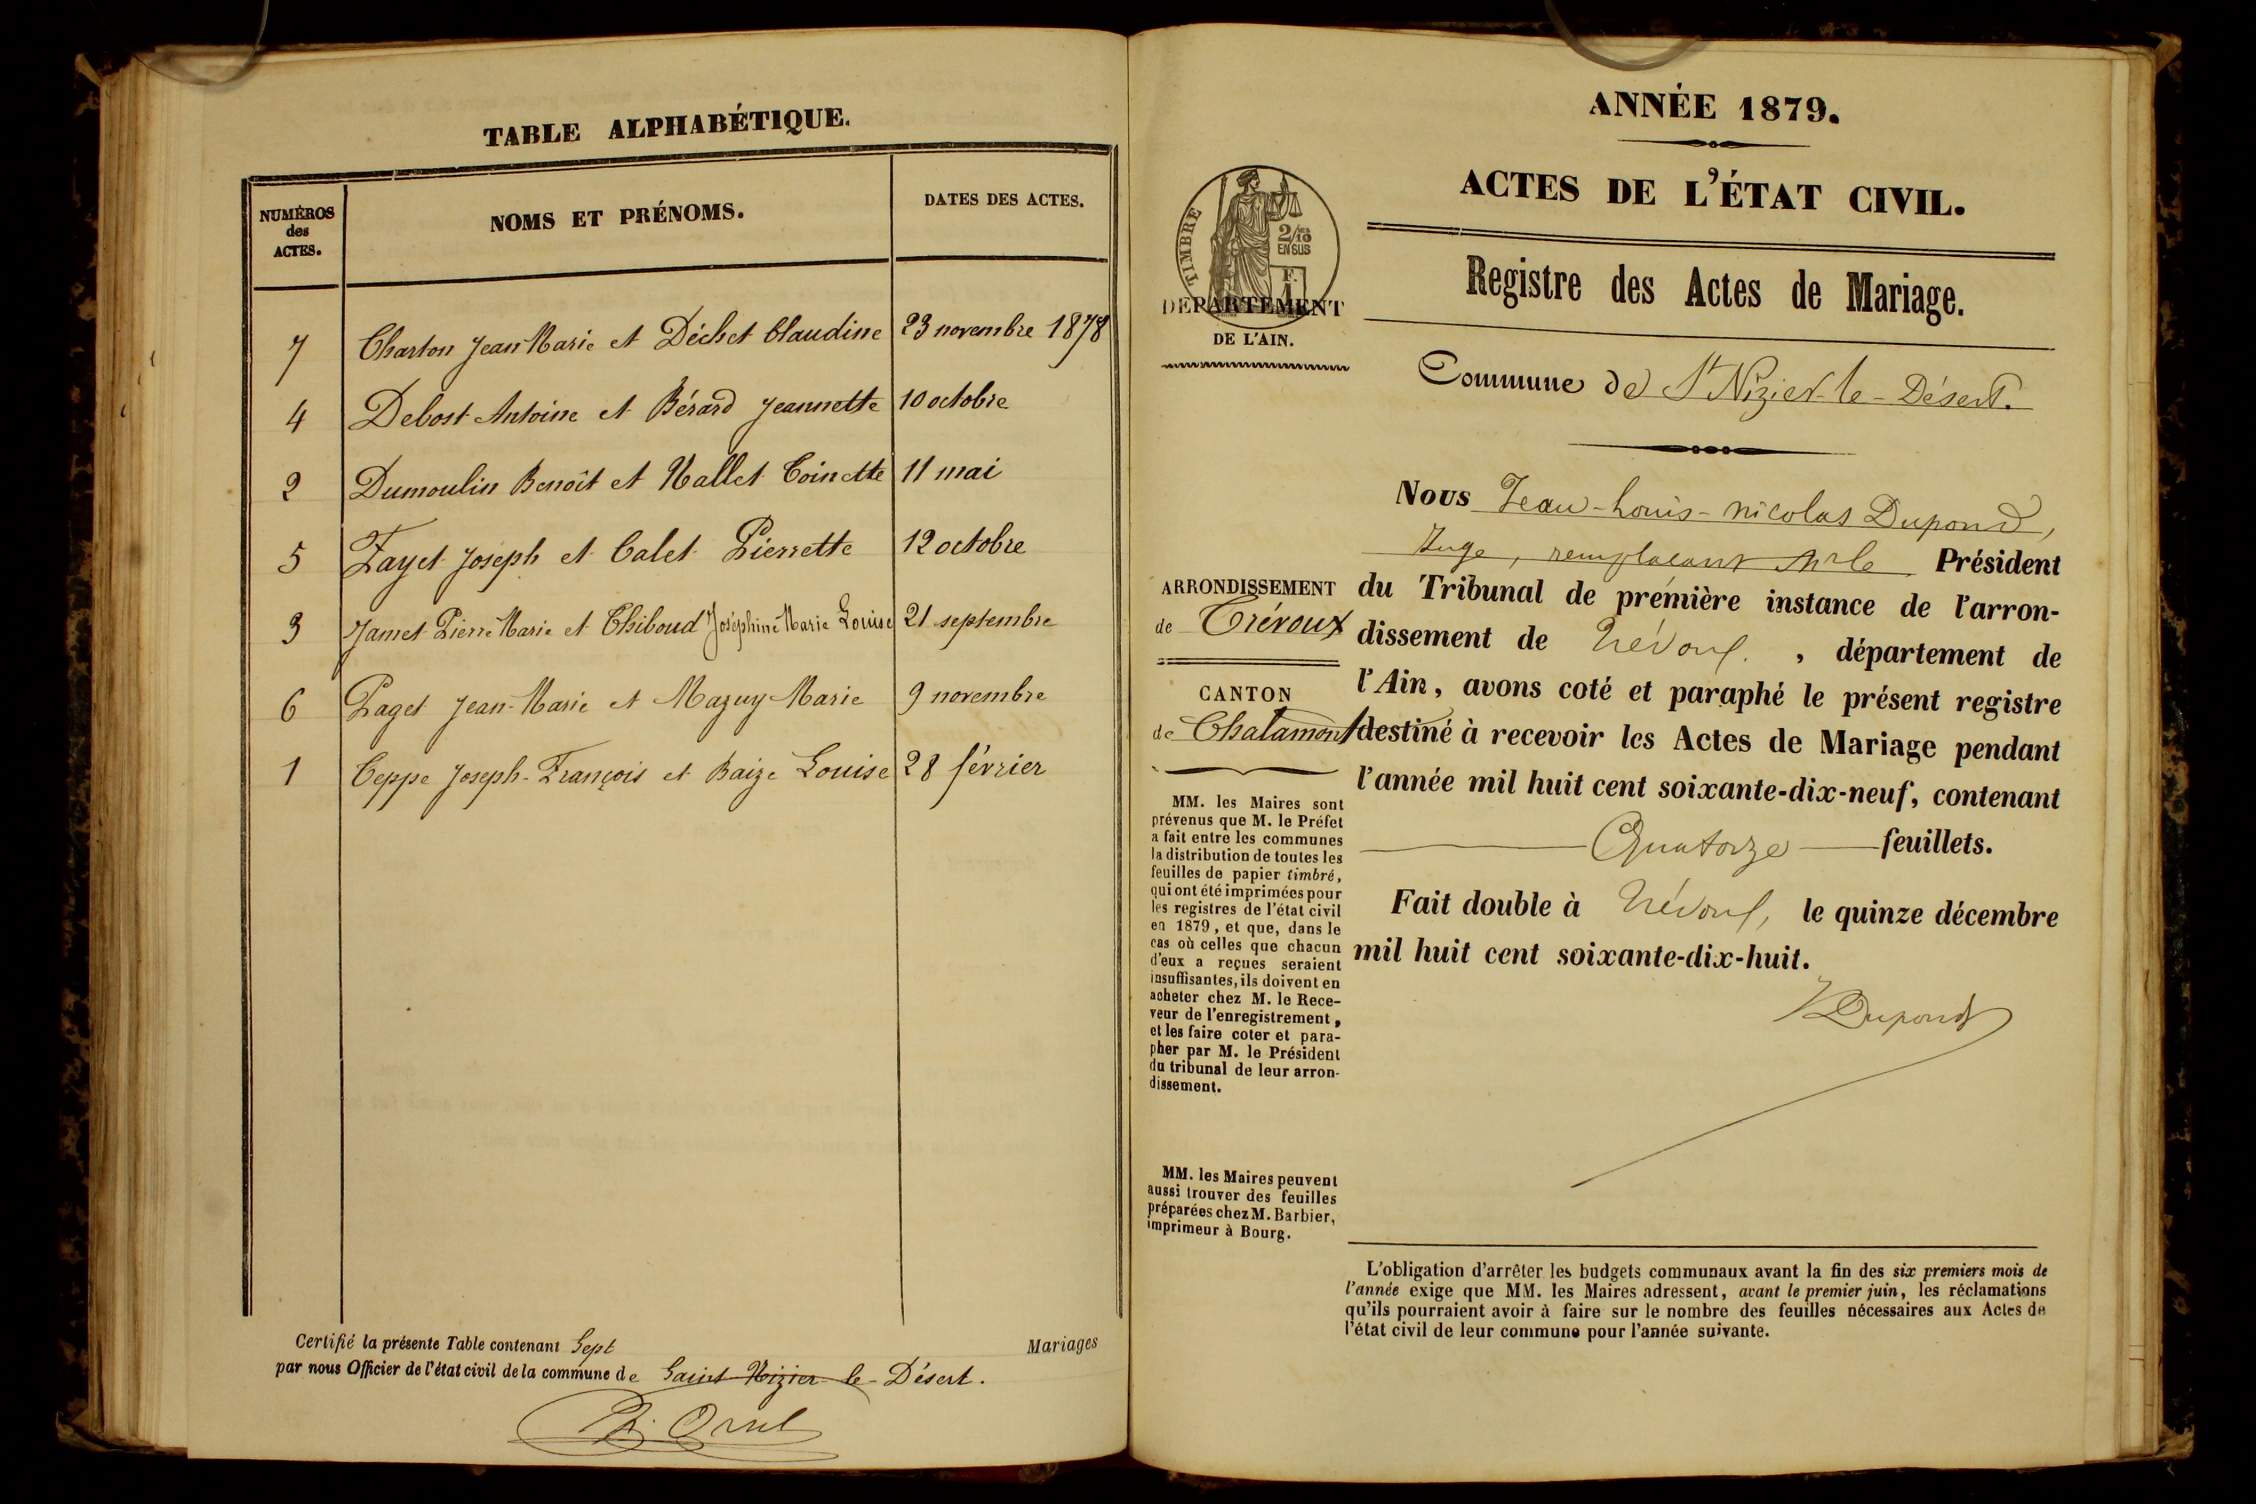 TABLE ALPHABÉTIQUE.
NUMÉROS des ACTES.
NOMS ET PRÉNOMS.
DATES DES ACTES.
7 Charton Jean Marie et Déchet Claudine 23 novembre 1878
4 Debost Antoine et Bérard Jeannette 10 octobre
2 Dumoulin Benoît et Mallet Toinette 11 mai
5 Fayet Joseph et Calet Pierrette 12 octobre
3 Jamet Pierre Marie et Thiboud Joséphine Marie Louise 21 septembre
6 Paget Jean-Marie et Mazuy Marie 9 novembre
1 Teppe Joseph-François et Baize Louise 28 février
Certifié la présente Table contenant Sept Mariages
par nous Officier de l'état civil de la commune de Saint Nizier-le-Désert.
ANNÉE 1879.
ACTES DE L'ÉTAT CIVIL.
Registre des Actes de Mariage.
Commune de St Nizier-le-Désert.
TIMBRE
2/10
EN SUS
F.
1
DÉPARTEMENT
DE L'AIN.
ARRONDISSEMENT
de Trévoux
CANTON
de Chalamont
MM. les Maires sont
prévenus que M. le Préfet
a fait entre les communes
la distribution de toutes les
feuilles de papier timbré,
qui ont été imprimées pour
les registres de l'état civil
en 1879, et que, dans le
cas où celles que chacun
d'eux a reçues seraient
insuffisantes, ils doivent en
acheter chez M. le Rece-
veur de l'enregistrement,
et les faire coter et para-
pher par M. le Président
du tribunal de leur arron-
dissement.
MM. les Maires peuvent
aussi trouver des feuilles
préparées chez M. Barbier,
imprimeur à Bourg.
Nous Jean-Louis-Nicolas Dupond,
Juge, remplaçant Mr le Président
du Tribunal de première instance de l'arron-
dissement de Trévoux, département de
l'Ain, avons coté et paraphé le présent registre
destiné à recevoir les Actes de Mariage pendant
l'année mil huit cent soixante-dix-neuf, contenant
Quatorze feuillets.
Fait double à Trévoux, le quinze décembre
mil huit cent soixante-dix-huit.
Dupond
L'obligation d'arrêter les budgets communaux avant la fin des six premiers mois de
l'année exige que MM. les Maires adressent, avant le premier juin, les réclamations
qu'ils pourraient avoir à faire sur le nombre des feuilles nécessaires aux Actes de
l'état civil de leur commune pour l'année suivante.